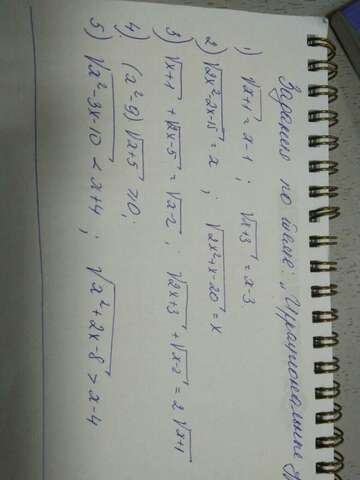 Задания по теме: "Иррациональные
1) √x+1 = x-1 ; √x+3 = x-3.
2) √2x²-2x-15 = x ; √2x²+x-20 = x
3) √x+1 + √2x-5 = √x-2 ; √2x+3 + √x-2 = 2√x+1
4) (x²-9)√x+5 ≥ 0;
5) √x²-3x-10 < x+4 ; √x²+2x-8 > x-4